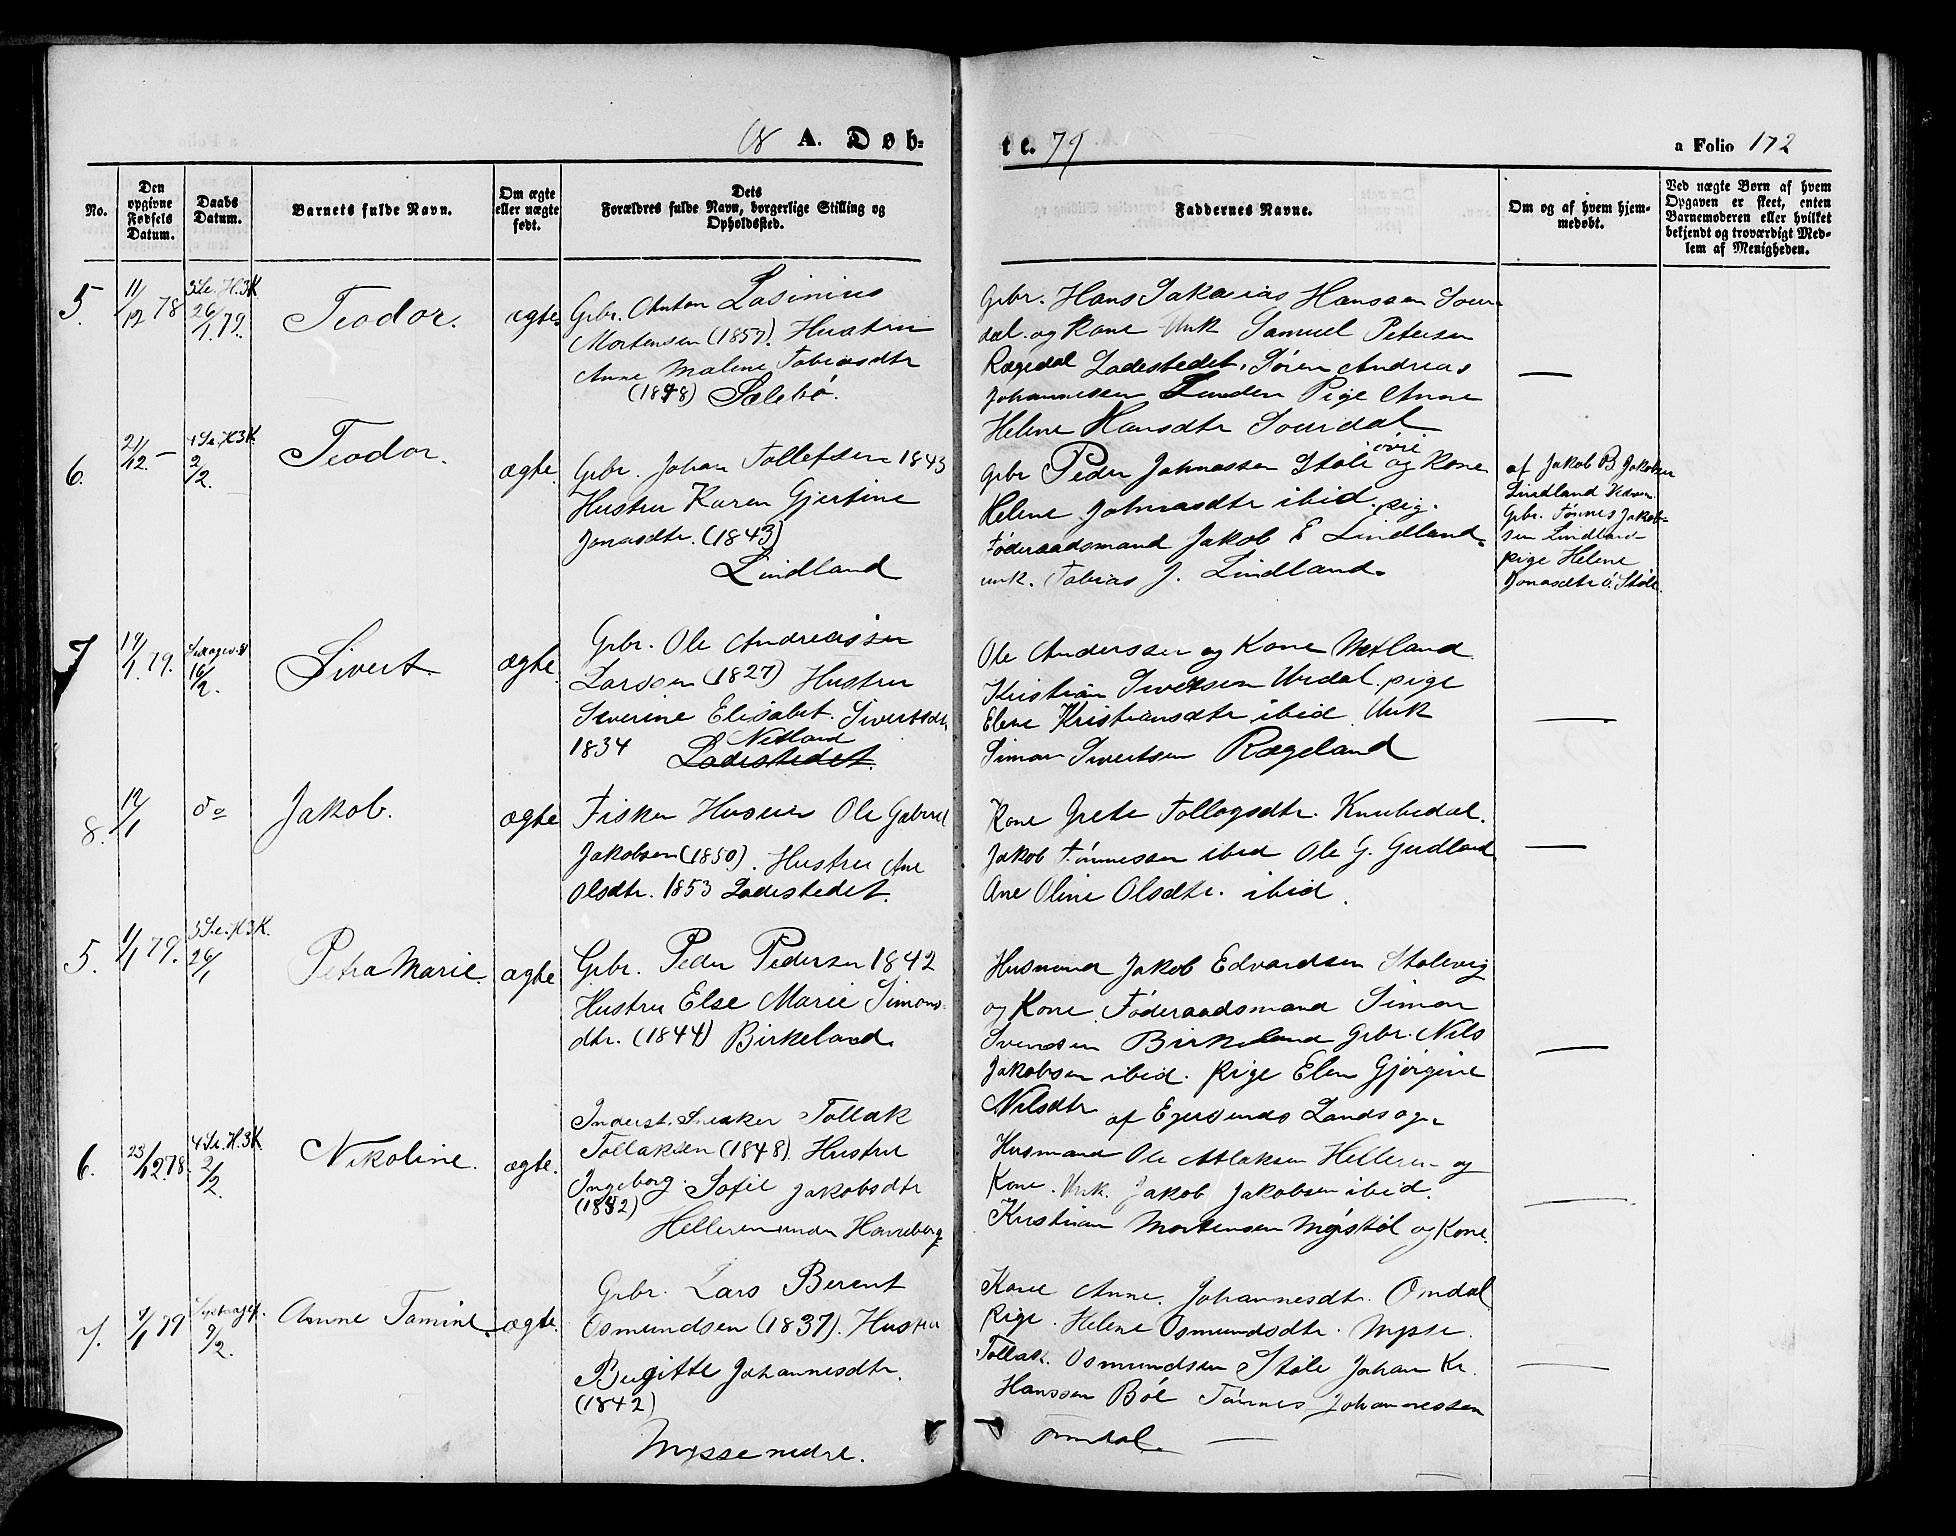 18 A. Døb-
te. 79
a Folio 172
No.
Den opgivne Fødsels Datum.
Daabs Datum.
Barnets fulde Navn.
Om ægte eller nægte født.
Dets Forældres fulde Navn, borgerlige Stilling og Opholdssted.
Faddernes Navne.
Om og af hvem hjemmedøbt.
Ved nægte Børn af hvem Opgaven er skeet, enten Barnemoderen eller hvilket bekjendt og troværdigt Medlem af Menigheden.
5. 11/12 78 3 Se. H.3K 26/1 79. Teodor. ægte.
Grbr. Anton Lasinius
Mortensen (1857). Hustru
Anne Malene Tobiasdtr
(1848) Sælebø.
Grbr. Hans Sakarias Hanssen Sour-
dal. og Kone Unk Samuel Petersen
Rægedal Ladestedet. Søren Andreas
Johannessen Lunden Pige Anne
Helene Hansdtr Sourdal
—
6. 21/12 — 4 Se. H3K. 2/2. Teodor. ægte.
Grbr. Johan Tollefsen 1843
Hustru Karen Gjertine
Jonasdtr. (1843)
Lindland
Grbr Peder Johnassen Støle øvre og Kone
Helene Johnasdtr ibid. pig.
Føderaadsmand Jakob E Lindland.
unk. Tobias J. Lindland.
af Jakob B Jakobsen
Lindland
Grbr. Tønnes Jakob-
sen Lindland
pige Helene
Jonasdtr ø. Støle.
7 19/1 79. 16/2. Sivert. ægte.
Grbr. Ole Andreassen
Larssen (1827) Hustru
Severine Elisabet. Sivertsdtr
1834 Netland
Ladestedet.
Ole Anderssen og Kone Netland
Kristian Sivertsen Urdal. pige
Elene Kristiansdtr ibid. Unk
Simon Sivertsen Rægeland
—
8. 12/1 do Jakob. ægte
Fisker Huseier Ole Gabriel
Jakobsen (1850). Hustru Ane
Olsdtr. 1853 Ladestedet.
Kone Grete Tollagsdtr. Knubedal.
Jakob Tønnessen ibid Ole G. Gudland
Ane Oline Olsdtr. ibid.
—
5. 1/1 79. 3 Se. H3K. 26/1 Petra Marie. ægte
Grbr. Peder Pedersen 1842
Hustru Else Marie Simons-
dtr. (1844) Birkeland.
Husmand Jakob Edvardsen Stølevig
og Kone. Føderaadsmand Simon
Svendsen Birkeland Grbr. Nils
Jakobsen ibid. Pige Elen Gjørgine
Nilsdtr af Egersunds Landsogn
—
6. 23/12 78. 4 Se. H.3K 2/2 Nikoline. ægte.
Inderst. Sneker Tollak
Tollaksen (1848). Hustru
Ingeborg. Sofie Jakobsdtr
(1852)
Helleren under Havreberg
Husmand Ole Atlaksen Helleren og
Kone. Unk. Jakob Jakobsen ibid.
Kristian Mortensen Mysstøl og Kone.
—
7. 4/1 79 9/2. Anne Tomine. ægte.
Grbr. Lars Berent
Osmundsen (1837). Hustru
Birgitte Johannesdtr.
(1842)
Mysse nedre.
Kone Anne. Johannesdtr. Omdal
Pige. Helene Osmundsdtr. Mysse.
Tollak. Osmundsen Støle Johan Kr.
Hanssen Bøe Tønnes Johannessen
Omdal. —
—